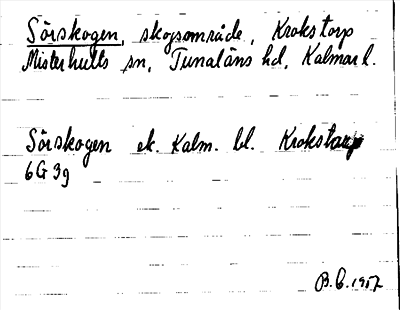 Sörskogen, skogsområde, Krokstorp
Misterhults sn, Tunaläns hd, Kalmar l.
Sörskogen ek. Kalm. bl. Krokstorp
6G 3g
B. C. 1957